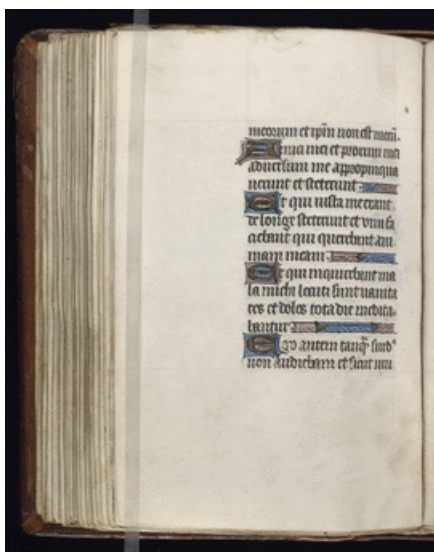 meorum et ip̄m non est mecū.
Amici mei et proximi mei
aduersum me appropinqua
uerunt et steterunt.
Et qui iuxta me erant
de longe steterunt et vim fa
ciebant qui querebant ani
mam meam.
Et qui inquirebant ma
la michi locuti sunt uanita
tes et dolos tota die medita
bantur.
Ego autem tanq̄ surdꝰ
non audiebam et sicut mu